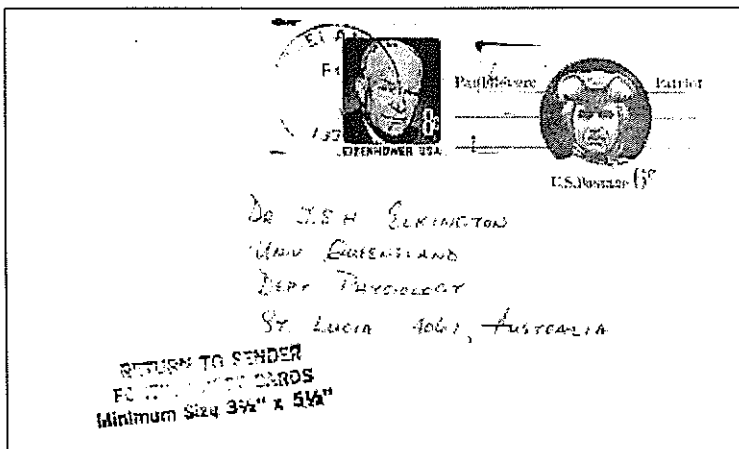 8¢
EISENHOWER USA
Paul Revere Patriot
U.S. Postage 6¢
DR J.S H ELKINGTON
UNIV QUEENSLAND
DEPT PHYSIOLOGY
ST. LUCIA 4067, AUSTRALIA
RETURN TO SENDER
CARDS
Minimum Size 3½" x 5½"